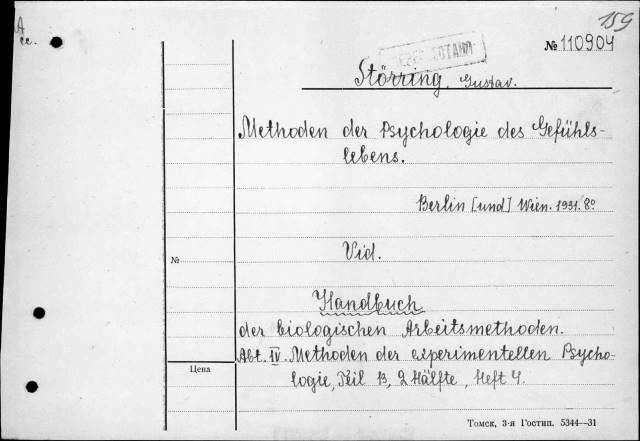 159
A
ee.
№ 110904
Störring, Gustav.
Methoden der Psychologie des Gefühls-
lebens.
Berlin [und] Wien. 1931. 8°
№
Vid.
Handbuch
der biologischen Arbeitsmethoden.
Abt. IV. Methoden der experimentellen Psycho-
Цена
logie, Teil B, 2 Hälfte, Heft 4.
Томск, 3-я Гостип. 5344—31